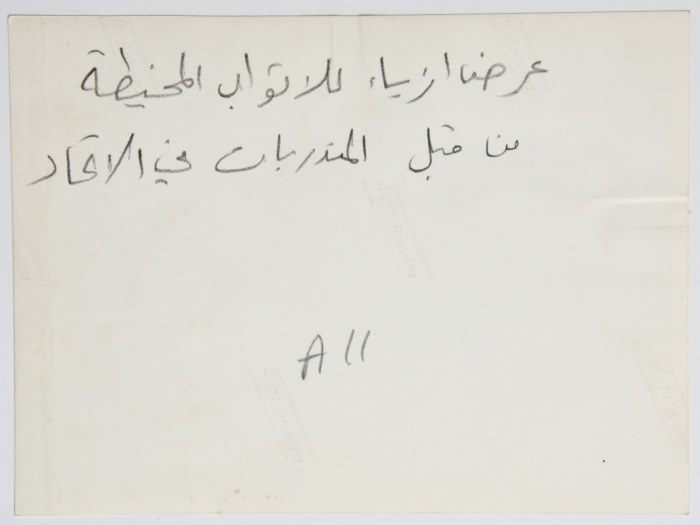 عرض ازياء للاثواب المخيطة
من قبل المتدربات في الاتحاد
A 11